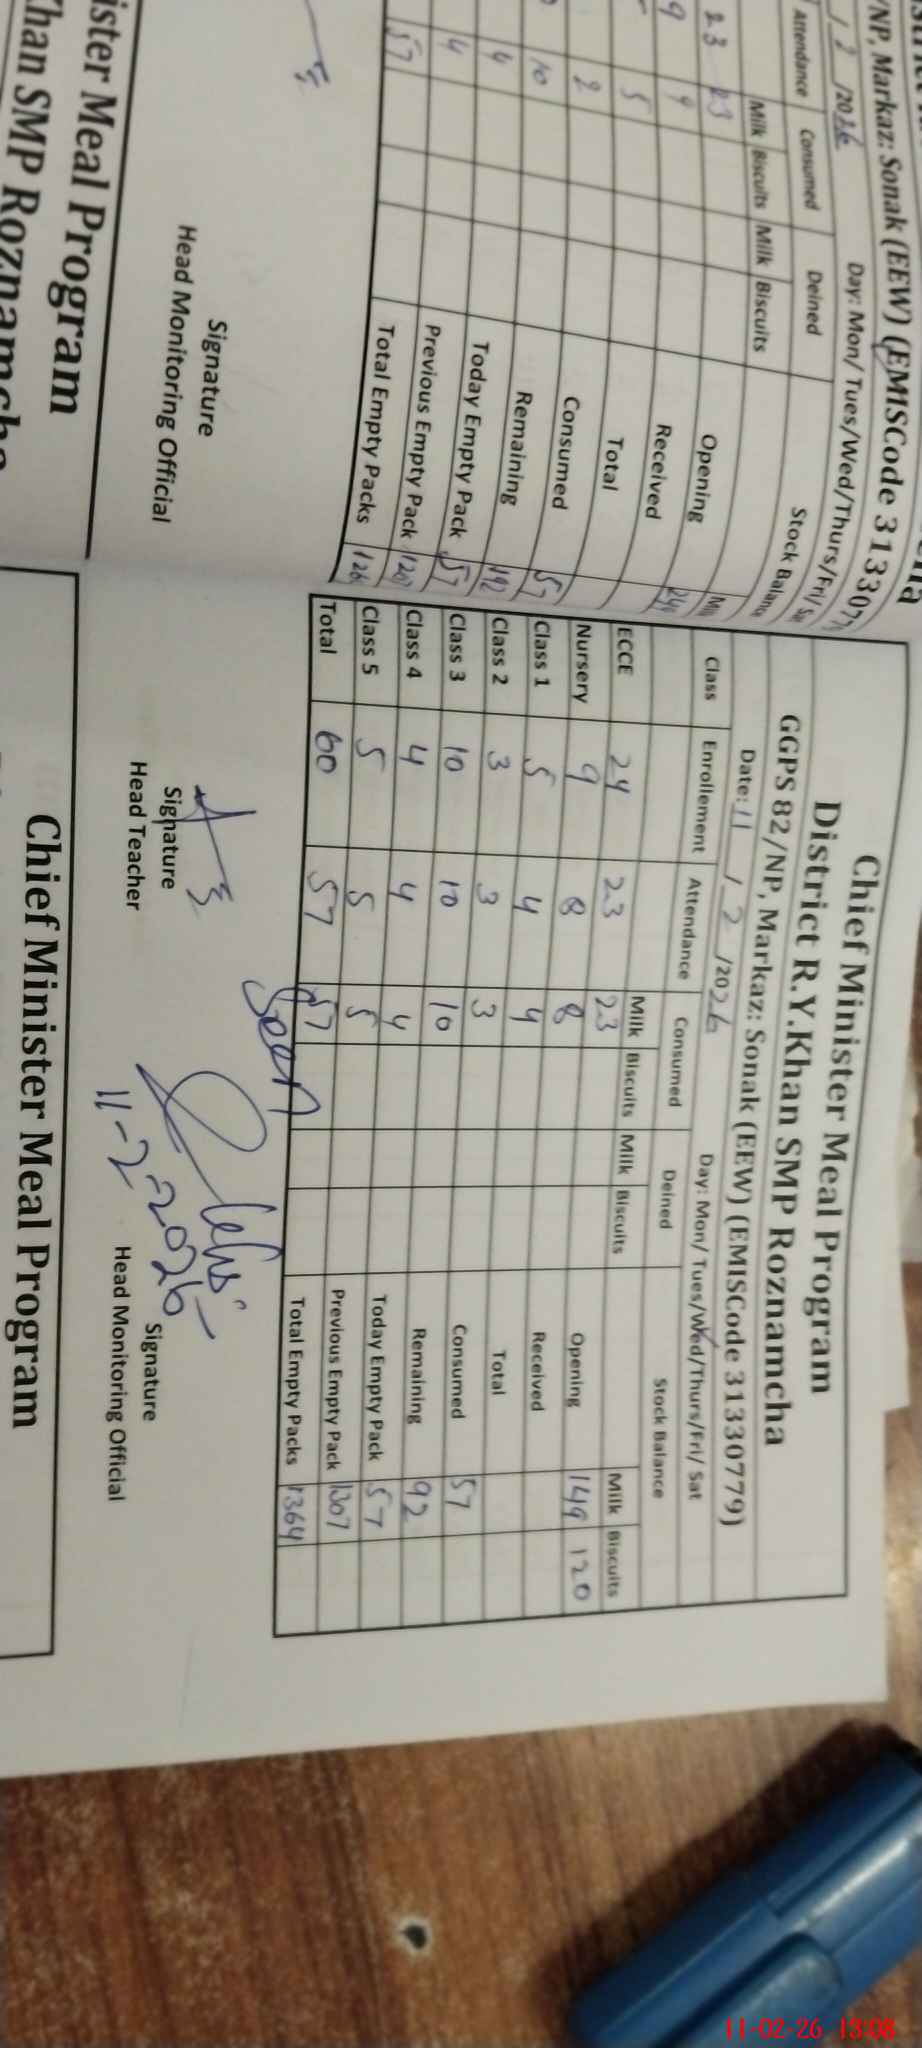 /NP, Markaz: Sonak (EEW) (EMISCode 3133077
/ 2 /2026 Day: Mon/ Tues/Wed/Thurs/Fri/
Attendance Consumed Deined Stock Balance
Milk Biscuits Milk Biscuits
23 23 Opening
9 9 Received
5 Total
2 Consumed 57
10 Remaining 192
4 4 Today Empty Pack 57
4 Previous Empty Pack
57 Total Empty Packs
Signature
Head Monitoring Official
ister Meal Program
Khan SMP Roznamcha
Chief Minister Meal Program
District R.Y.Khan SMP Roznamcha
GGPS 82/NP, Markaz: Sonak (EEW) (EMISCode 31330779)
Date: 11 / 2 /2026 Day: Mon/ Tues/Wed/Thurs/Fri/ Sat
Class Enrollement Attendance Consumed Deined Stock Balance
Milk Biscuits Milk Biscuits Milk Biscuits
ECCE 24 23 23 Opening 149 120
Nursery 9 8 8 Received
Class 1 5 4 4 Total
Class 2 3 3 3 Consumed 57
Class 3 10 10 10 Remaining 92
Class 4 4 4 4 Today Empty Pack 57
Class 5 5 5 5 Previous Empty Pack 1307
Total 60 57 57 Total Empty Packs 1364
Seen
11-2-2026
Signature
Head Teacher
Signature
Head Monitoring Official
Chief Minister Meal Program
11-02-26 13:08